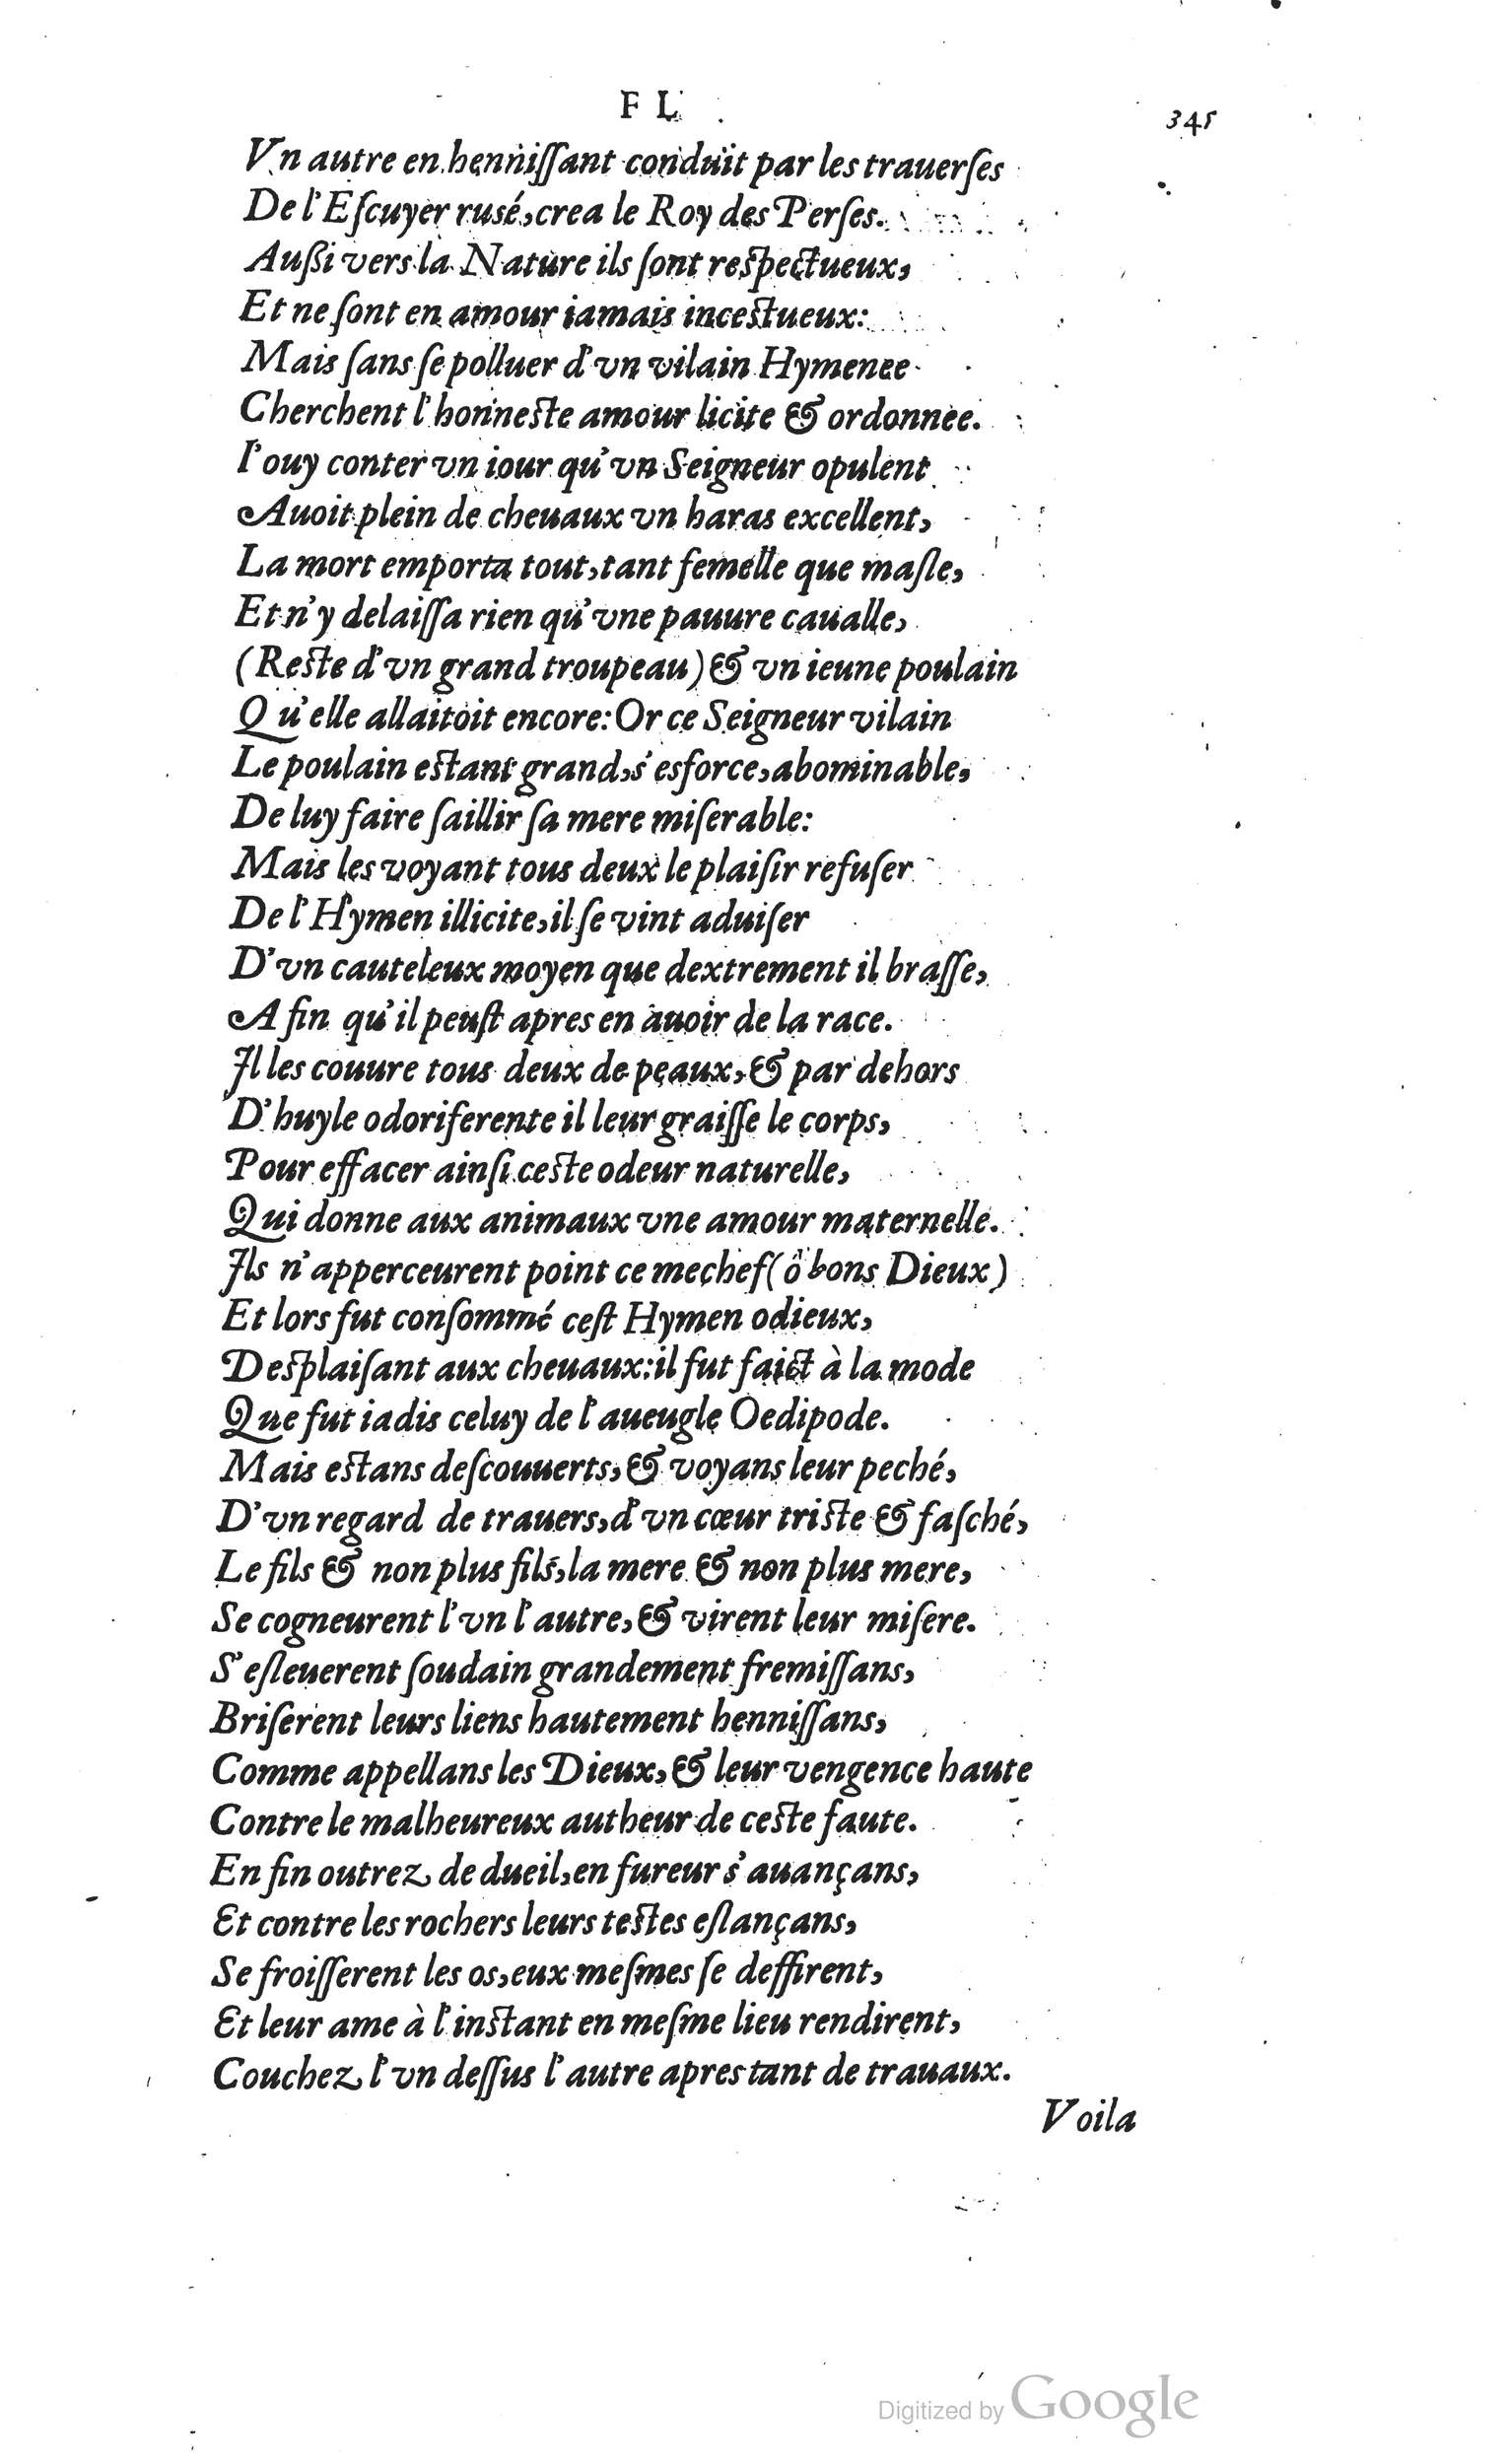 F L
345
Vn autre en henniſſant conduit par les trauerſes
De l'Eſcuyer rusé, crea le Roy des Perſes.
Außi vers la Nature ils ſont reſpectueux,
Et ne ſont en amour iamais inceſtueux:
Mais ſans ſe polluer d'vn vilain Hymenee
Cherchent l'honneſte amour licite & ordonnee.
I'ouy conter vn iour qu'vn Seigneur opulent
Auoit plein de cheuaux vn haras excellent,
La mort emporta tout, tant femelle que maſle,
Et n'y delaiſſa rien qu'vne pauure caualle,
(Reſte d'vn grand troupeau) & vn ieune poulain
Qu'elle allaitoit encore: Or ce Seigneur vilain
Le poulain eſtant grand, s'esforce, abominable,
De luy faire ſaillir ſa mere miſerable:
Mais les voyant tous deux le plaiſir refuſer
De l'Hymen illicite, il ſe vint aduiſer
D'vn cauteleux moyen que dextrement il braſſe,
A fin qu'il peuſt apres en auoir de la race.
Il les couure tous deux de peaux, & par dehors
D'huyle odoriferente il leur graiſſe le corps,
Pour effacer ainſi ceſte odeur naturelle,
Qui donne aux animaux vne amour maternelle.
Ils n'apperceurent point ce mechef (ô bons Dieux)
Et lors fut conſommé ceſt Hymen odieux,
Deſplaiſant aux cheuaux: il fut faict à la mode
Que fut iadis celuy de l'aueugle Oedipode.
Mais eſtans deſcouuerts, & voyans leur peché,
D'vn regard de trauers, d'vn cœur triſte & faſché,
Le fils & non plus fils, la mere & non plus mere,
Se cogneurent l'vn l'autre, & virent leur miſere.
S'eſleuerent ſoudain grandement fremiſſans,
Briſerent leurs liens hautement henniſſans,
Comme appellans les Dieux, & leur vengence haute
Contre le malheureux autheur de ceſte faute.
En fin outrez de dueil, en fureur s'auançans,
Et contre les rochers leurs teſtes eſlançans,
Se froiſſerent les os, eux meſmes ſe deffirent,
Et leur ame à l'inſtant en meſme lieu rendirent,
Couchez l'vn deſſus l'autre apres tant de trauaux.
Voila
Digitized by Google